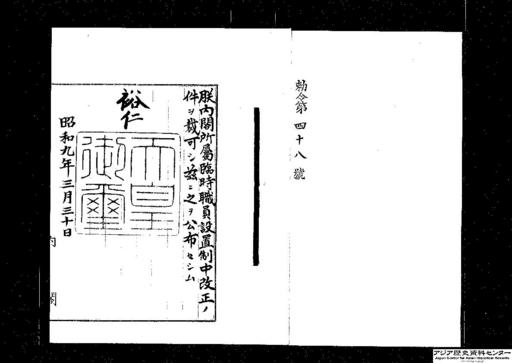 勅令第四十八號
朕内閣所屬臨時職員設置制中改正ノ
件ヲ裁可シ茲ニ之ヲ公布セシム
裕仁
天皇
御璽
昭和九年三月三十日
内閣
アジア歴史資料センター
Japan Center for Asian Historical Records